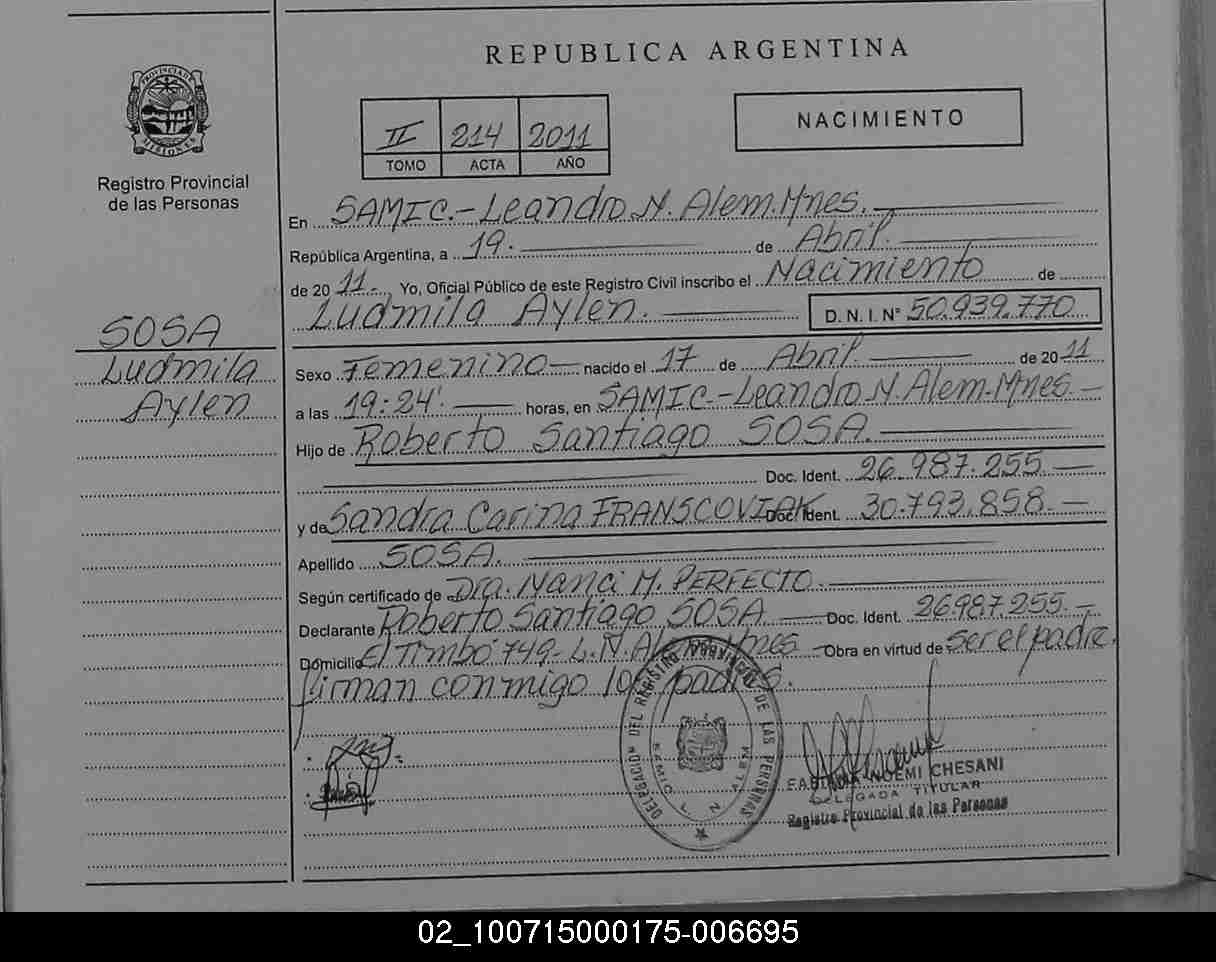 REPUBLICA ARGENTINA
NACIMIENTO
II 214 2011
TOMO ACTA AÑO
PROVINCIA DE MISIONES
Registro Provincial
de las Personas
SOSA
Ludmila
Aylen
En SAMIC.-Leandro N. Alem.Mnes.
República Argentina, a 19. de Abril.
de 20 11.- Yo, Oficial Público de este Registro Civil inscribo el Nacimiento de
Ludmila Aylen. D. N. I. Nº 50.939.770
Sexo Femenino nacido el 17 de Abril. de 20 11
a las 19:24'. horas, en SAMIC.-Leandro N. Alem.Mnes.
Hijo de Roberto Santiago SOSA.
Doc. Ident. 26.987.255
y de Sandra Carina FRANSCOVIAK Doc. Ident. 30.793.858.
Apellido SOSA.
Según certificado de Dra. Nanci M. PERFECTO.
Declarante Roberto Santiago SOSA Doc. Ident. 26987.255.
Domicilio El Timbó 749- L.N. Alem Mnes Obra en virtud de ser el padre.
firman conmigo los padres.
DELEGACION DEL REGISTRO PROVINCIAL DE LAS PERSONAS
L. N. ALEM
NOEMI CHESANI
DELEGADA TITULAR
Registro Provincial de las Personas
02_100715000175-006695